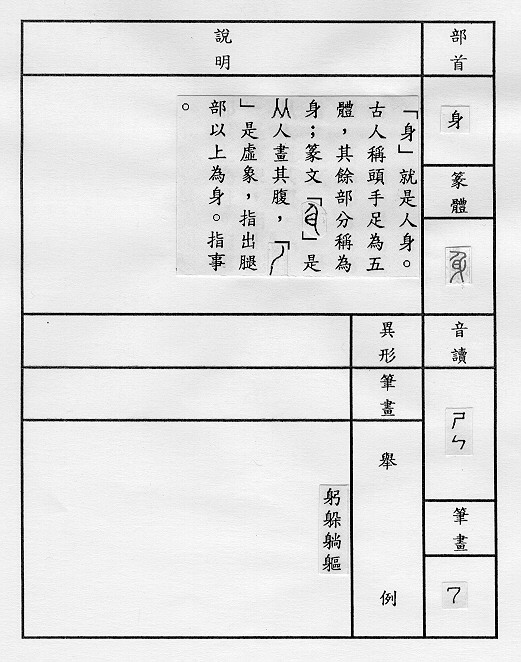 部首
身
篆體
音讀
ㄕㄣ
筆畫
7
說明
「身」就是人身。
古人稱頭手足為五
體，其餘部分稱為
身；篆文「」是
从人畫其腹，「
」是虛象，指出腿
部以上為身。指事
。
異形
筆畫
舉例
躬躲躺軀